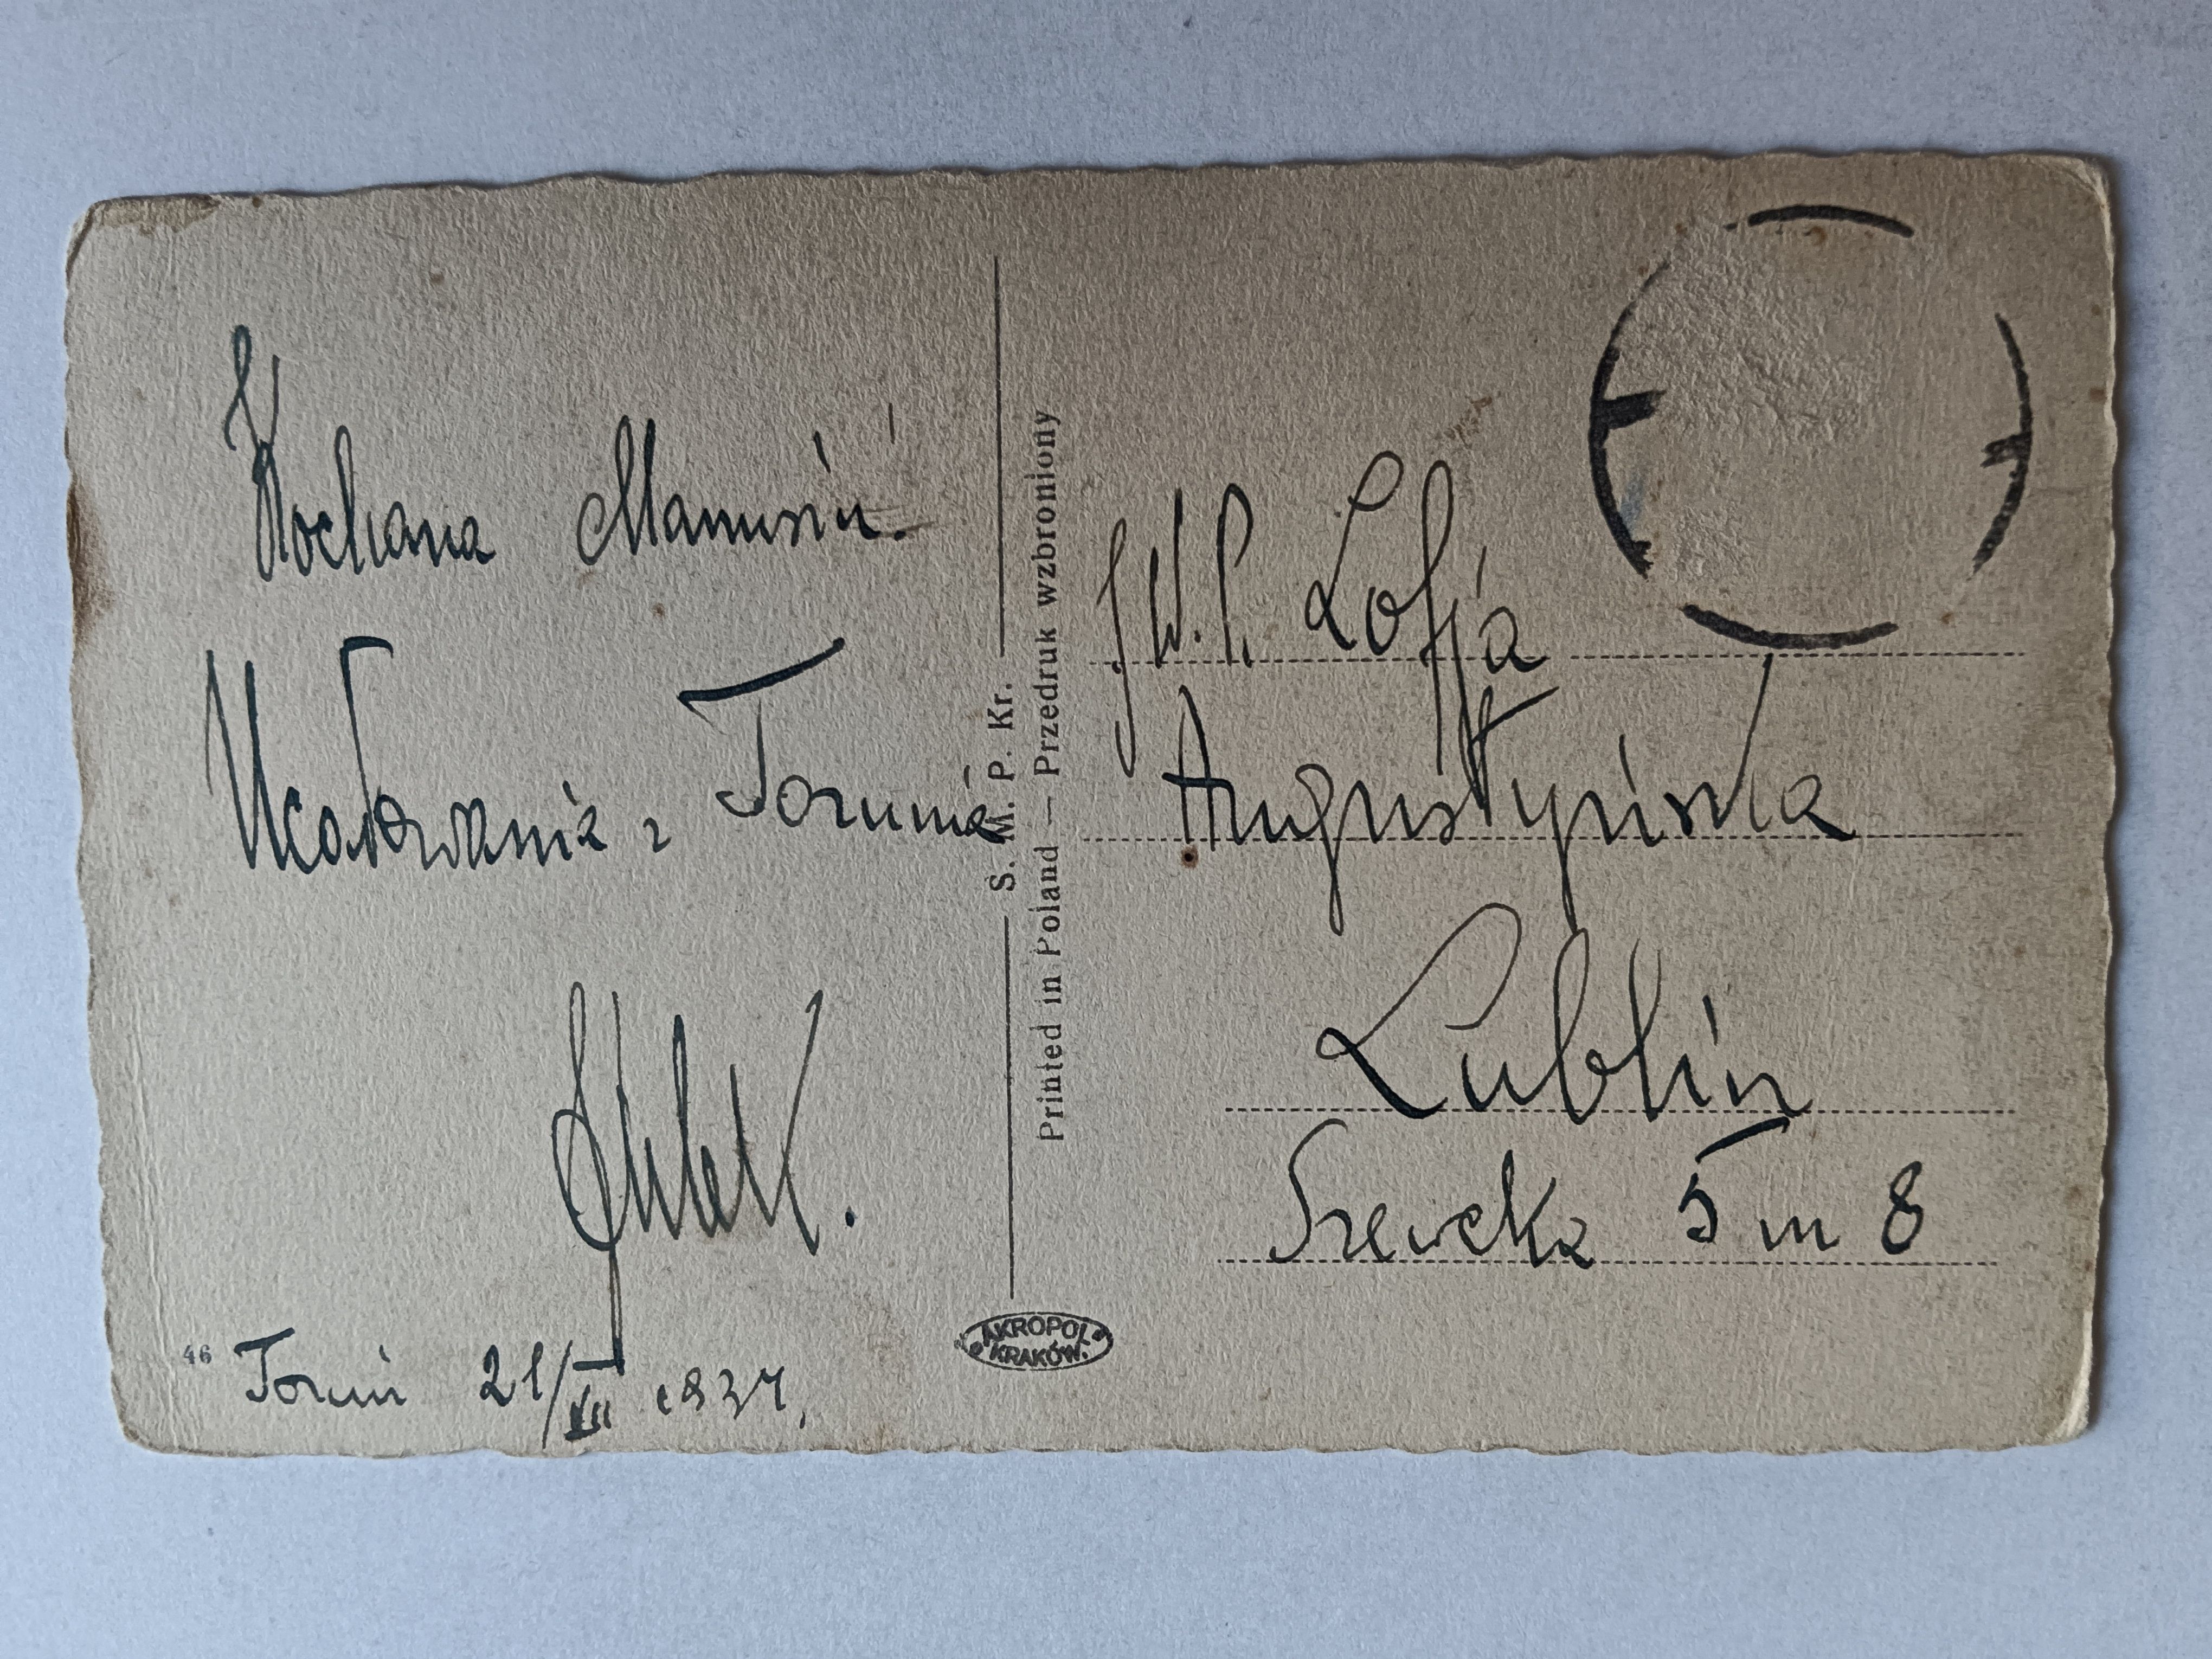 Kochana Mamusiu.
Ucałowania z Torunia
Toruń 21/VII 1937.
46
S. M. P. Kr.
Printed in Poland — Przedruk wzbroniony
AKROPOL
KRAKÓW.
J.W.P. Zofja
Augustyńska
Lublin
Szewcka 5 m 8